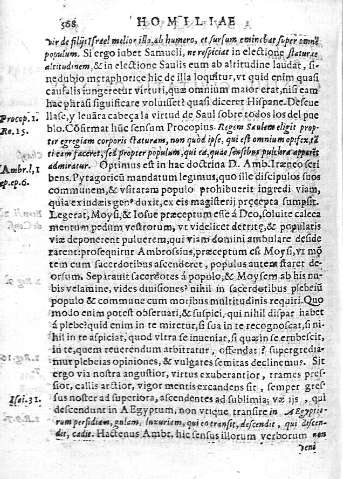 568 HOMILIAE
vir de filijs Israel melior illo, ab humero, et sursum eminebat super omnẽ
populum. Si ergo iubet Samueli, ne respiciat in electione staturæ
altitudinem, & in electione Saulis eum ab altitudine laudat, si-
nedubio metaphorice hic de illa loquitur, vt quid enim quasi
causalis iungeretur virtuti, quæ omnium maior erat, nisi eam
hac phrasi significare voluisset? quasi diceret Hispane. Descue
llase, y leuãra cabeça la virtud de Saul sobre todos los del pue
Procop. 1. blo. Cõfirmat hũc sensum Procopius. Regem Saulem eligit prop
Re. 15. ter egregiam corporis staturam, non quod ipse, qui est omnium opifex, tã
ti eam faceret, sed propter populum, qui ea, quæ sensibus pulchra apparẽt
Ambr. l. 1 admiratur. Optimus est in hac doctrina D. Amb. Irenæo scri
ep. ep. 6. bens. Pytagoricũ mandatum legimus, quo ille discipulos suos
communem, & vsitatam populo prohibuerit ingredi viam,
quia exiudæis genº duxit, ex eis magisterij præcepta sumpsit.
Legerat, Moysi, & Iosue præceptum esse á Deo, soluite calcea
mentum pedum vestrorum, vt videlicet detritę, & popularis
viæ deponerent puluerem, qui viam domini ambulare deside
rarent: prosequitur Ambrosius, præceptum est Moysi, vt mõ
tem cum sacerdotibus ascenderet, populus autem staret de-
orsum. Separauit sacerdotes á populo, & Moysem ab his nu-
bis velamine, vides diuisiones? nihil in sacerdotibus plebeiũ
populo & commune cum moribus multitudinis requiri. Quo
modo enim potest obseruari, & suspici, qui nihil dispar habet
á plebe? quid enim in te miretur, si sua in te recognoscat, si ni-
hil in te aspiciat, quod vltra se inueniat, si quæ in se erubescit,
in te, quem reuerendum arbitratur, offendat? supergredia-
mur plebeias opiniones, & vulgares semitas declinemus. Sit
ergo via nostra angustior, virtus exuberantior, trames pres-
sior, callis arctior, vigor mentis excandens sit, semper gres-
sus noster ad superiora, ascendentes ad sublimia; væ ijs, qui
Isai. 31. descendunt in AEgyptum, non vtique transire in AEgyptũ
rum perfidiam, gulam, luxuriam, qui eo transit, descendit, qui descen-
dit, cadit. Hactenus Ambr. hic sensus illorum verborum non
veni